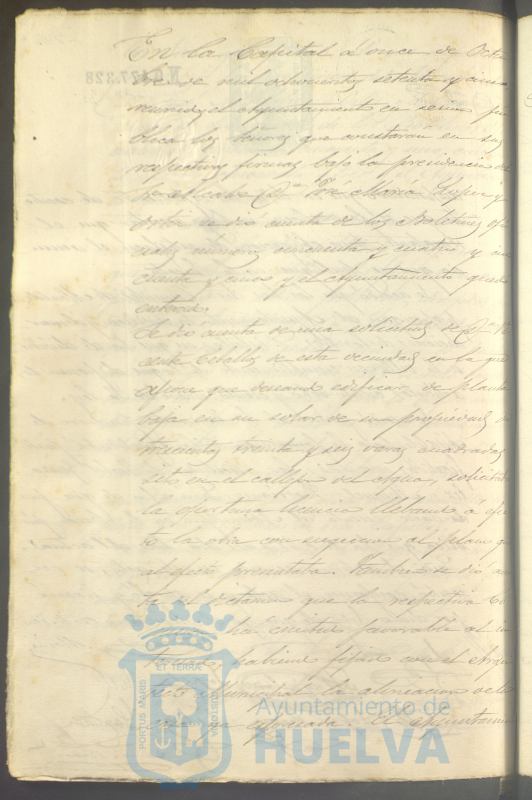 En la Capital a once de Octu
bre de mil ochocientos setenta y cinco
reunido el Ayuntamiento en sesion pu
blica los Señores que constarán en sus
respectivas firmas bajo la presidencia del
Sor Alcalde Dn José Maria Lopez y
Ortiz se dio cuenta de los Boletines ofi
ciales numeros cincuenta y cuatro y cin
cuenta y cinco y el Ayuntamiento quedó
enterado.
Se dio cuenta de una solicitud de Dn Vi
cente Ceballos de esta vecindad en la que
expone que deseando edificar de planta
baja en su solar de su propiedad de
trescientas treinta y seis varas cuadradas
sito en el callejon del Agua, solicitaba
la oportuna licencia llebando á efec
to la obra con sugecion al plano que
al efecto presentaba. Tambien se dio cuen
ta del dictamen que la respectiva
ha emitido favorable al in
habiendo fijado con el Arqui
tecto Municipal la alineacion de la
espresada. El Ayuntamien
PORTUS MARIS
ET TERRÆ
CUSTODIA
Ayuntamiento de
HUELVA